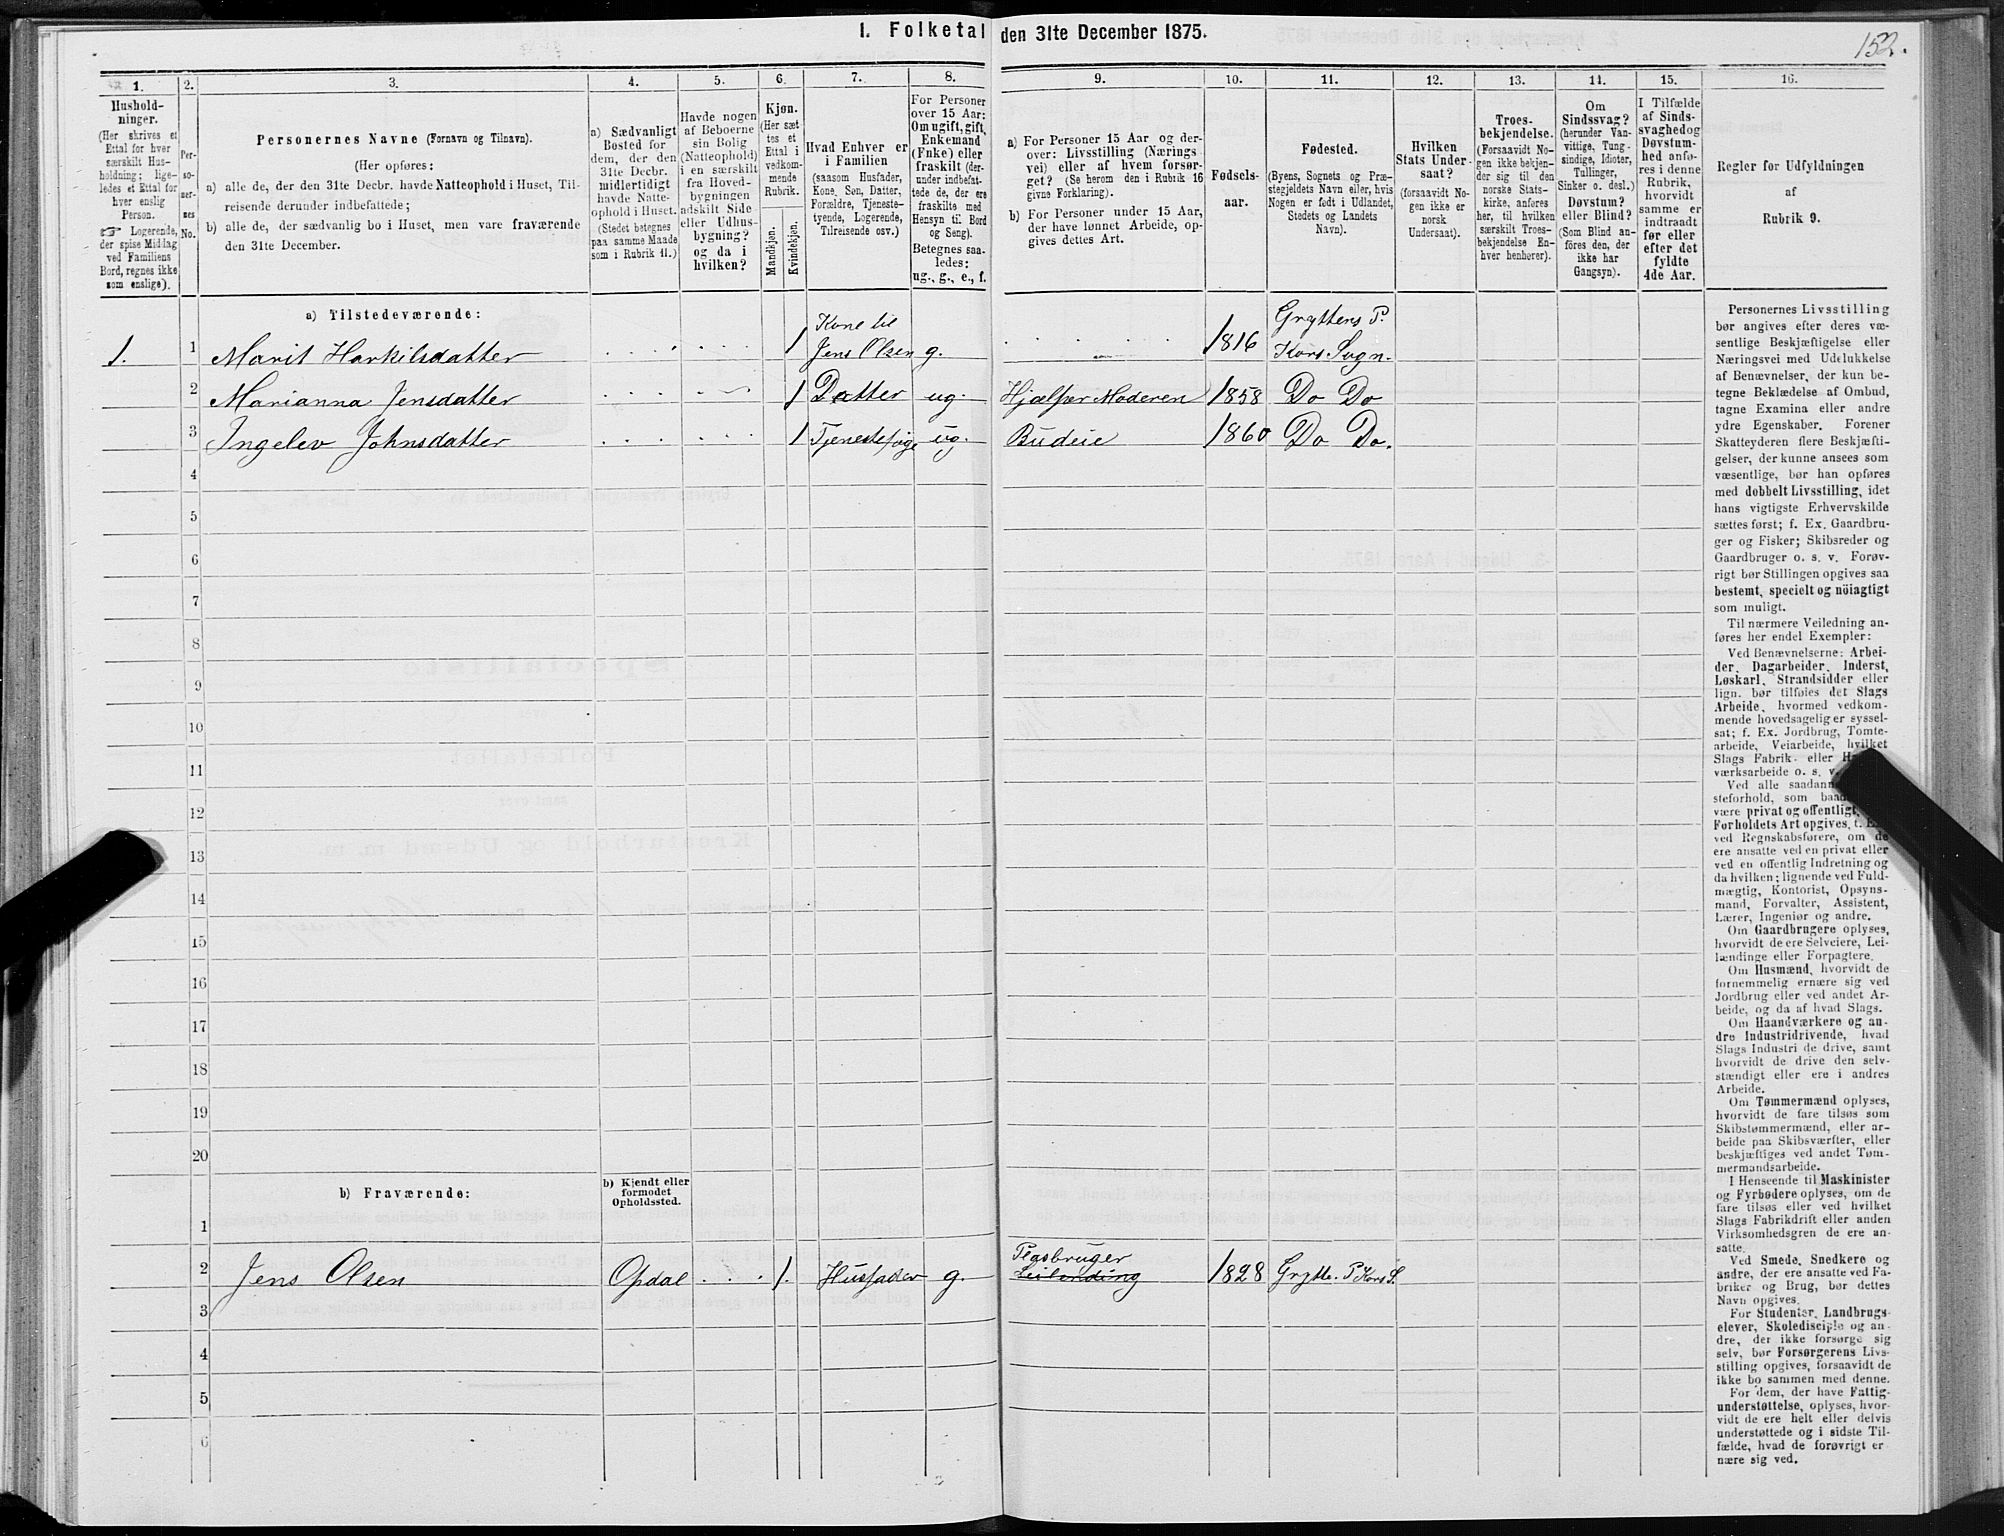 1. Folketal den 31te December 1875.
152.
1. 2. 3. 4. 5. 6. 7. 8. 9. 10. 11. 12. 13. 14. 15. 16.
Hushold-
ninger.
(Her skrives et
Ettal for hver
særskilt Hus-
holdning; lige-
ledes et Ettal for
hver enslig
Person.
☞ Logerende,
der spise Middag
ved Familiens
Bord, regnes ikke
som enslige).
Per-
so-
ner-
nes
No.
Personernes Navne (Fornavn og Tilnavn).
(Her opføres:
a) alle de, der den 31te Decbr. havde Natteophold i Huset, Til-
reisende derunder indbefattede;
b) alle de, der sædvanlig bo i Huset, men vare fraværende
den 31te December.
a) Sædvanligt
Bosted for
dem, der den
31te Decbr.
midlertidigt
havde Natte-
ophold i Huset.
(Stedet betegnes
paa samme Maade
som i Rubrik 11.)
Havde nogen
af Beboerne
sin Bolig
(Natteophold)
i en særskilt
fra Hoved-
bygningen
adskilt Side
eller Udhus-
bygning?
og da i
hvilken?
Kjøn.
(Her sæt
tes et
Ettal i
vedkom-
mende
Rubrik.
Mandkjøn.
Kvindekjøn.
Hvad Enhver er
i Familien
(saasom Husfader,
Kone, Søn, Datter,
Forældre, Tjeneste-
tyende, Logerende,
Tilreisende osv.)
For Personer
over 15 Aar:
Om ugift, gift,
Enkemand
(Enke) eller
fraskilt (der-
under indbefat-
tede de, der ere
fraskilte med
Hensyn til Bord
og Seng).
Betegnes saa-
ledes:
ug., g., e., f.
a) For Personer 15 Aar og der-
over: Livsstilling (Nærings
vei) eller af hvem forsør-
get? (Se herom den i Rubrik 16
givne Forklaring).
b) For Personer under 15 Aar,
der have lønnet Arbeide, op-
gives dettes Art.
Fødsels-
aar.
Fødested.
(Byens, Sognets og Præ-
stegjeldets Navn eller, hvis
Nogen er født i Udlandet,
Stedets og Landets
Navn).
Hvilken
Stats Under-
saat?
(forsaavidt No-
gen ikke er
norsk
Undersaat).
Troes-
bekjendelse.
(Forsaavidt No-
gen ikke bekjen-
der sig til den
norske Stats-
kirke, anføres
her, til hvilken
særskilt Troes-
bekjendelse En-
hver henhører).
Om
Sindssvag?
(herunder Van-
vittige, Tung-
sindige, Idioter,
Tullinger,
Sinker o. desl.)
Døvstum?
eller Blind?
(Som Blind an-
føres den, der
ikke har
Gangsyn).
I Tilfælde
af Sinds-
svaghed og
Døvstum-
hed anfø-
res i denne
Rubrik,
hvorvidt
samme er
indtraadt
før eller
efter det
fyldte
4de Aar.
Regler for Udfyldningen
af
Rubrik 9.
a) Tilstedeværende:
1. 1 Marit Harkilsdatter 1 Kone til Jens Olsen g. 1816 Gryttens P. Kors Sogn.
2 Marianna Jensdatter 1 Datter ug. Hjælper Moderen 1858 Do Do
3 Ingelev Johnsdatter 1 Tjenestepige ug. Budeie 1860 Do Do.
4
5
6
7
8
9
10
11
12
13
14
15
16
17
18
19
20
b) Fraværende:
b) Kjendt eller
formodet
Opholdssted.
1
2 Jens Olsen Opdal 1. Husfader g. Plasbruger Leilending 1828 Grytte. P Kors S.
3
4
5
6
Personernes Livsstilling
bør angives efter deres væ-
sentlige Beskjæftigelse eller
Næringsvei med Udelukkelse
af Benævnelser, der kun be-
tegne Beklædelse af Ombud,
tagne Examina eller andre
ydre Egenskaber. Forener
Skatteyderen flere Beskjæfti-
gelser, der kunne ansees som
væsentlige, bør han opføres
med dobbelt Livsstilling, idet
hans vigtigste Erhvervskilde
sættes først; f. Ex. Gaardbru-
ger og Fisker; Skibsreder og
Gaardbruger o. s. v. Forøv-
rigt bør Stillingen opgives saa
bestemt, specielt og nöiagtigt
som muligt.
Til nærmere Veiledning an-
føres her endel Exempler:
Ved Benævnelserne: Arbei-
der, Dagarbeider, Inderst,
Løskarl, Strandsidder eller
lign. bør tilføies det Slags
Arbeide, hvormed vedkom-
mende hovedsageligen syssel-
sat; f. Ex. Jordbrug, Tomte-
arbeide, Veiarbeide, hvilket
Slags Fabrik- eller
værksarbeide o. s. v.
Ved alle saadan
steforhold, som baa
være privat og offentligt,
Forholdets Art opgives, f. E
ved Regnskabsførere, om de
ere ansatte ved en privat eller
ved en offentlig Indretning og
da hvilken; lignende ved Fuld-
mægtig, Kontorist, Opsyns-
mand, Forvalter, Assistent,
Lærer, Ingeniør og andre.
Om Gaardbrugere oplyses,
hvorvidt de ere Selveiere, Lei-
lændinge eller Forpagtere.
Om Husmænd, hvorvidt de
fornemmelig ernære sig ved
Jordbrug eller ved andet Ar-
beide, og da af hvad Slags.
Om Haandværkere og an-
dre Industridrivende, hvad
Slags Industri de drive, samt
hvorvidt de drive den selv-
stændigt eller ere i andres
Arbeide.
Om Tømmermænd oplyses,
hvorvidt de fare tilsøs som
Skibstømmermænd, eller ar-
beide paa Skibsværfter, eller
beskjæftiges ved andet Tøm-
mermandsarbeide.
I Henseende til Maskinister
og Fyrbødere oplyses, om de
fare tilsøs eller ved hvilket
Slags Fabrikdrift eller anden
Virksomhedsgren de ere an-
satte.
Ved Smede, Snedkere og
andre, der ere ansatte ved Fa-
briker og Brug, bør dettes
Navn opgives.
For Studenter, Landbrugs-
elever, Skoledisciple og an-
dre, der ikke forsørge sig
selv, bør Forsørgerens Livs-
stilling opgives, forsaavidt de
ikke bo sammen med denne.
For dem, der have Fattig-
understøttelse, oplyses, hvor-
vidt de ere helt eller delvis
understøttede og i sidste Til-
fælde, hvad de forøvrigt er
nære sig ved.